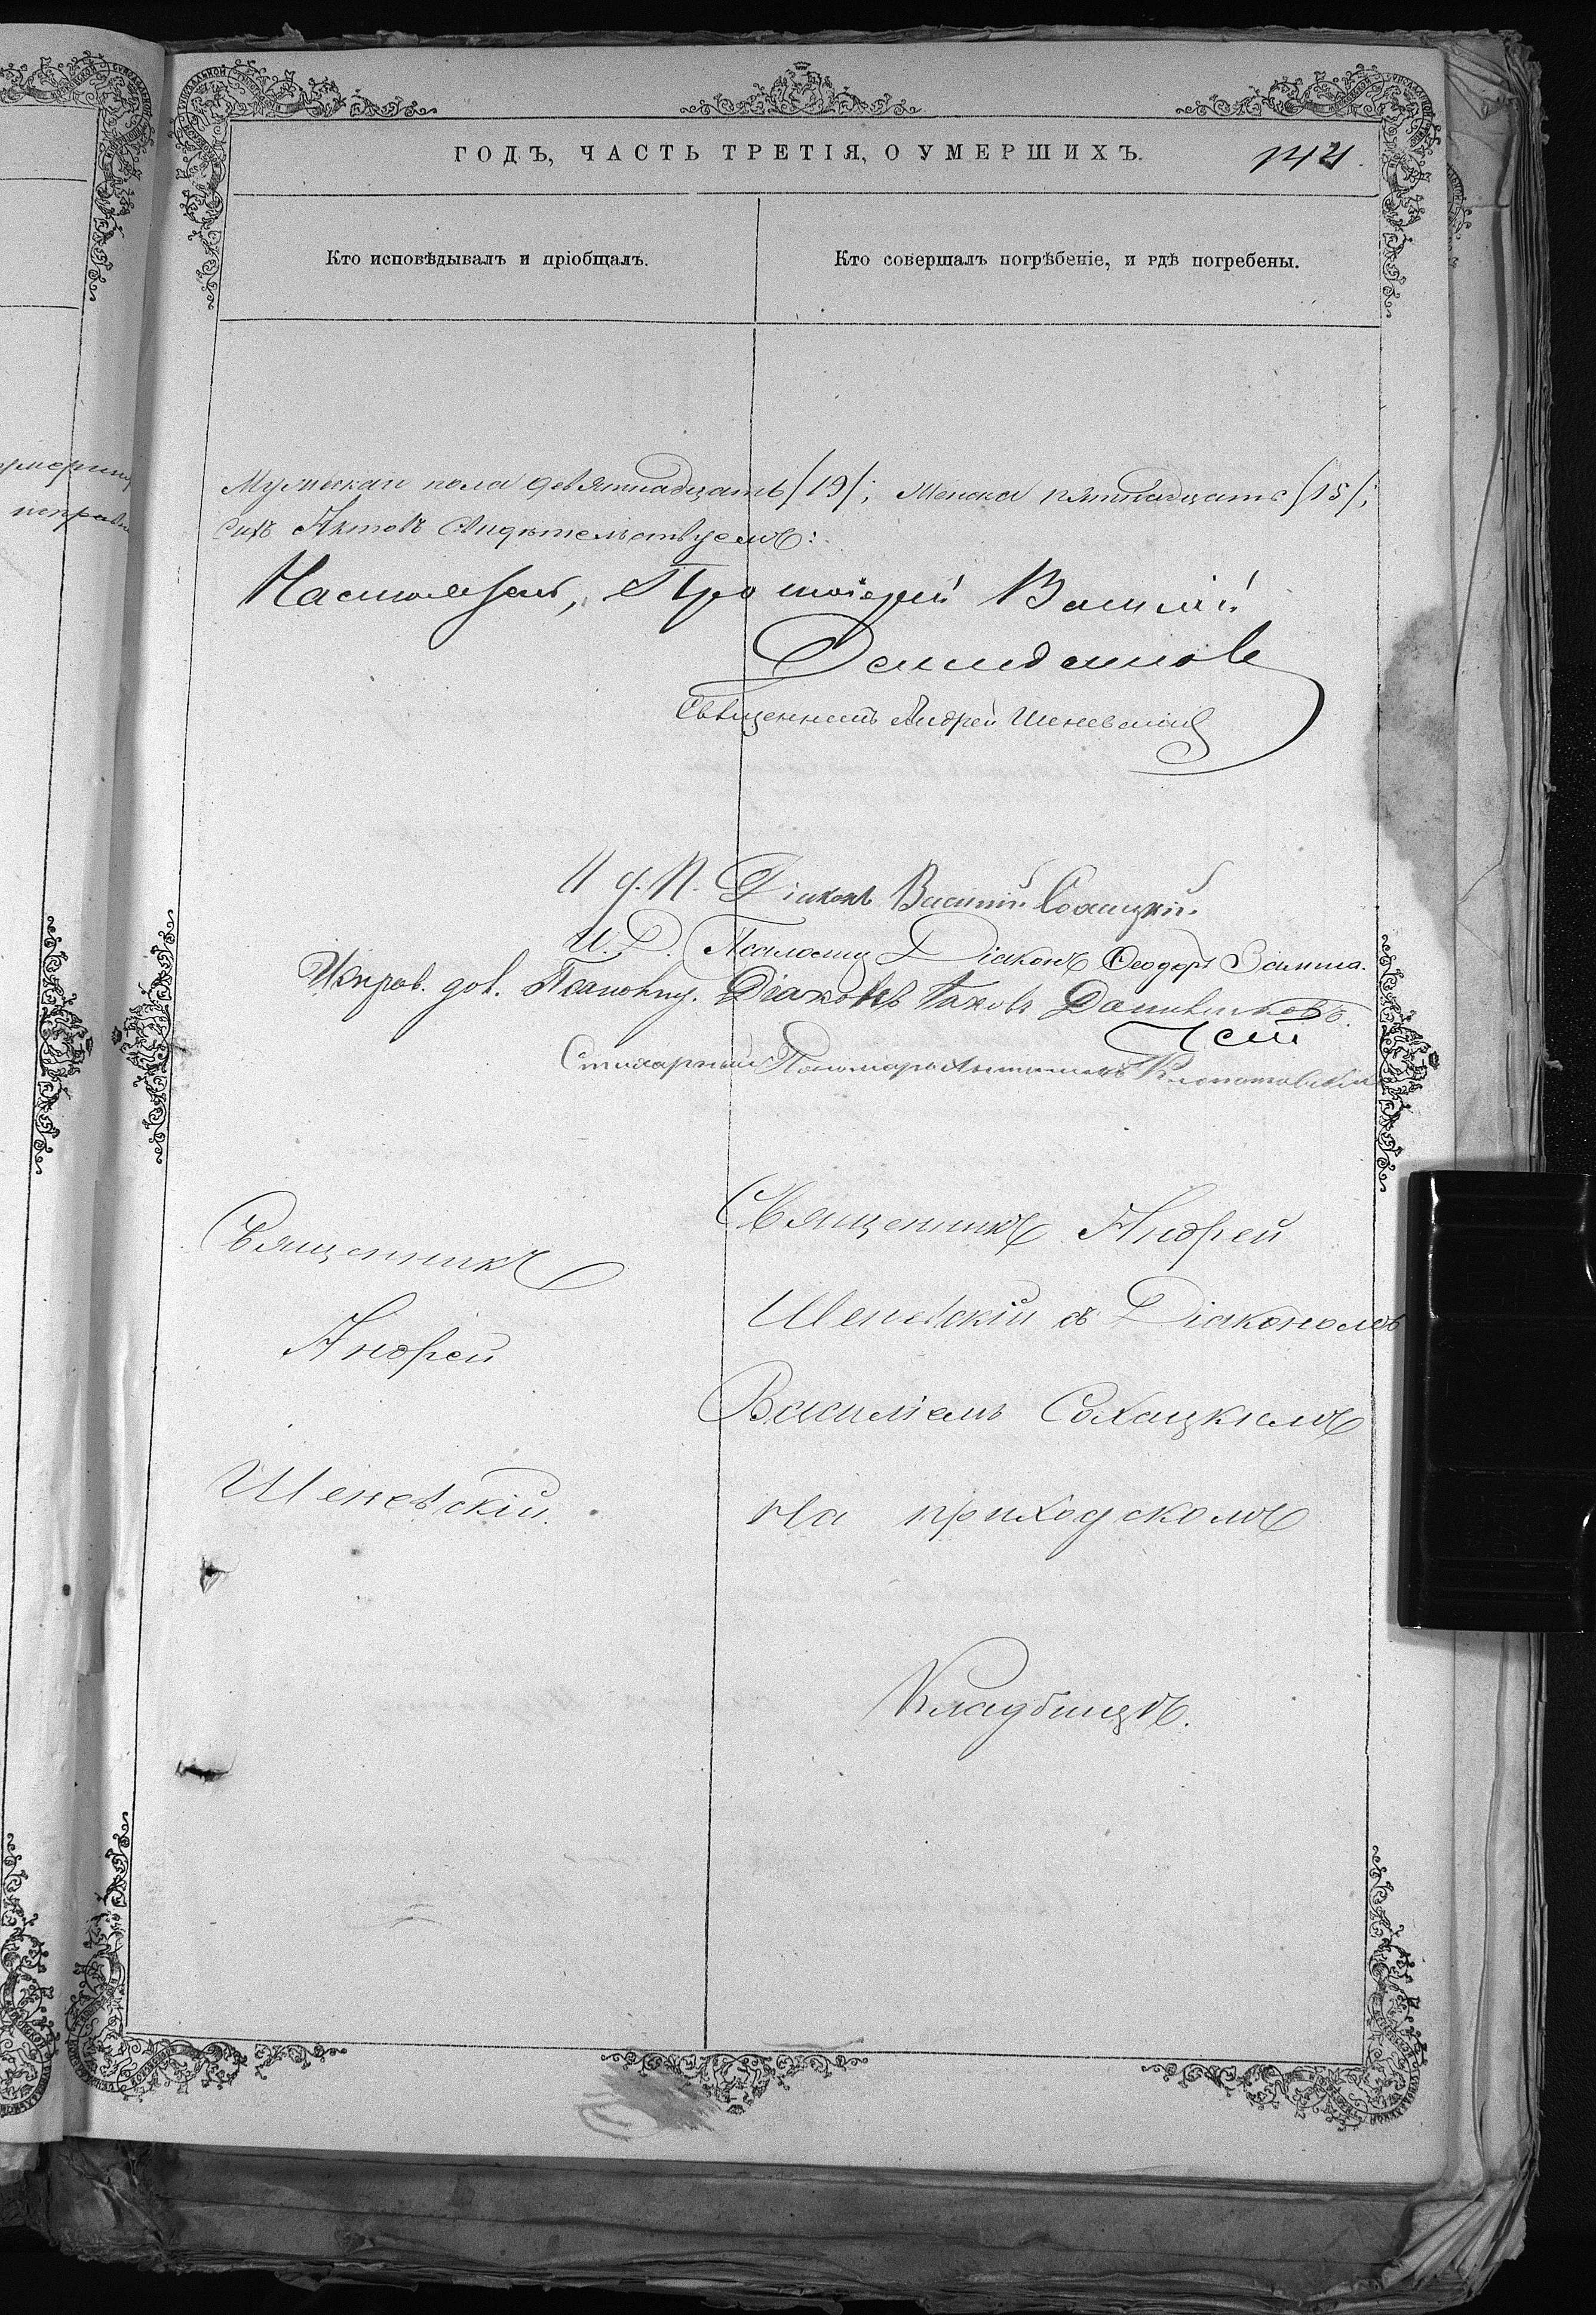 ГОДЪ, ЧАСТЬ ТРЕТІЯ, О УМЕРШИХЪ.
144.
Кто исповѣдывалъ и пріобщалъ.
Кто совершалъ погрѣбеніе, и гдѣ погребены.
Мужескаго пола девятнадцать /19/; Женска пятнадцать /15/;
сихъ Актовъ свидѣтельствуемъ:
Настоятель, Протоіерей Василій
Священникъ Андрей Шеневскій
И. д. П. Діаконъ Василій Сохацкій.
И. Д. Псаломщ Діаконъ Ѳеодоръ
Исправ. дол. Псаломщ. Діаконъ Іаковъ
Стихарный Пономарь Клопотовскій
Священникъ
Андрей
Шеневскій.
Священникъ Андрей
Шеневскій съ Діакономъ
Василіемъ Сохацкимъ
на приходскомъ
Кладбищѣ.